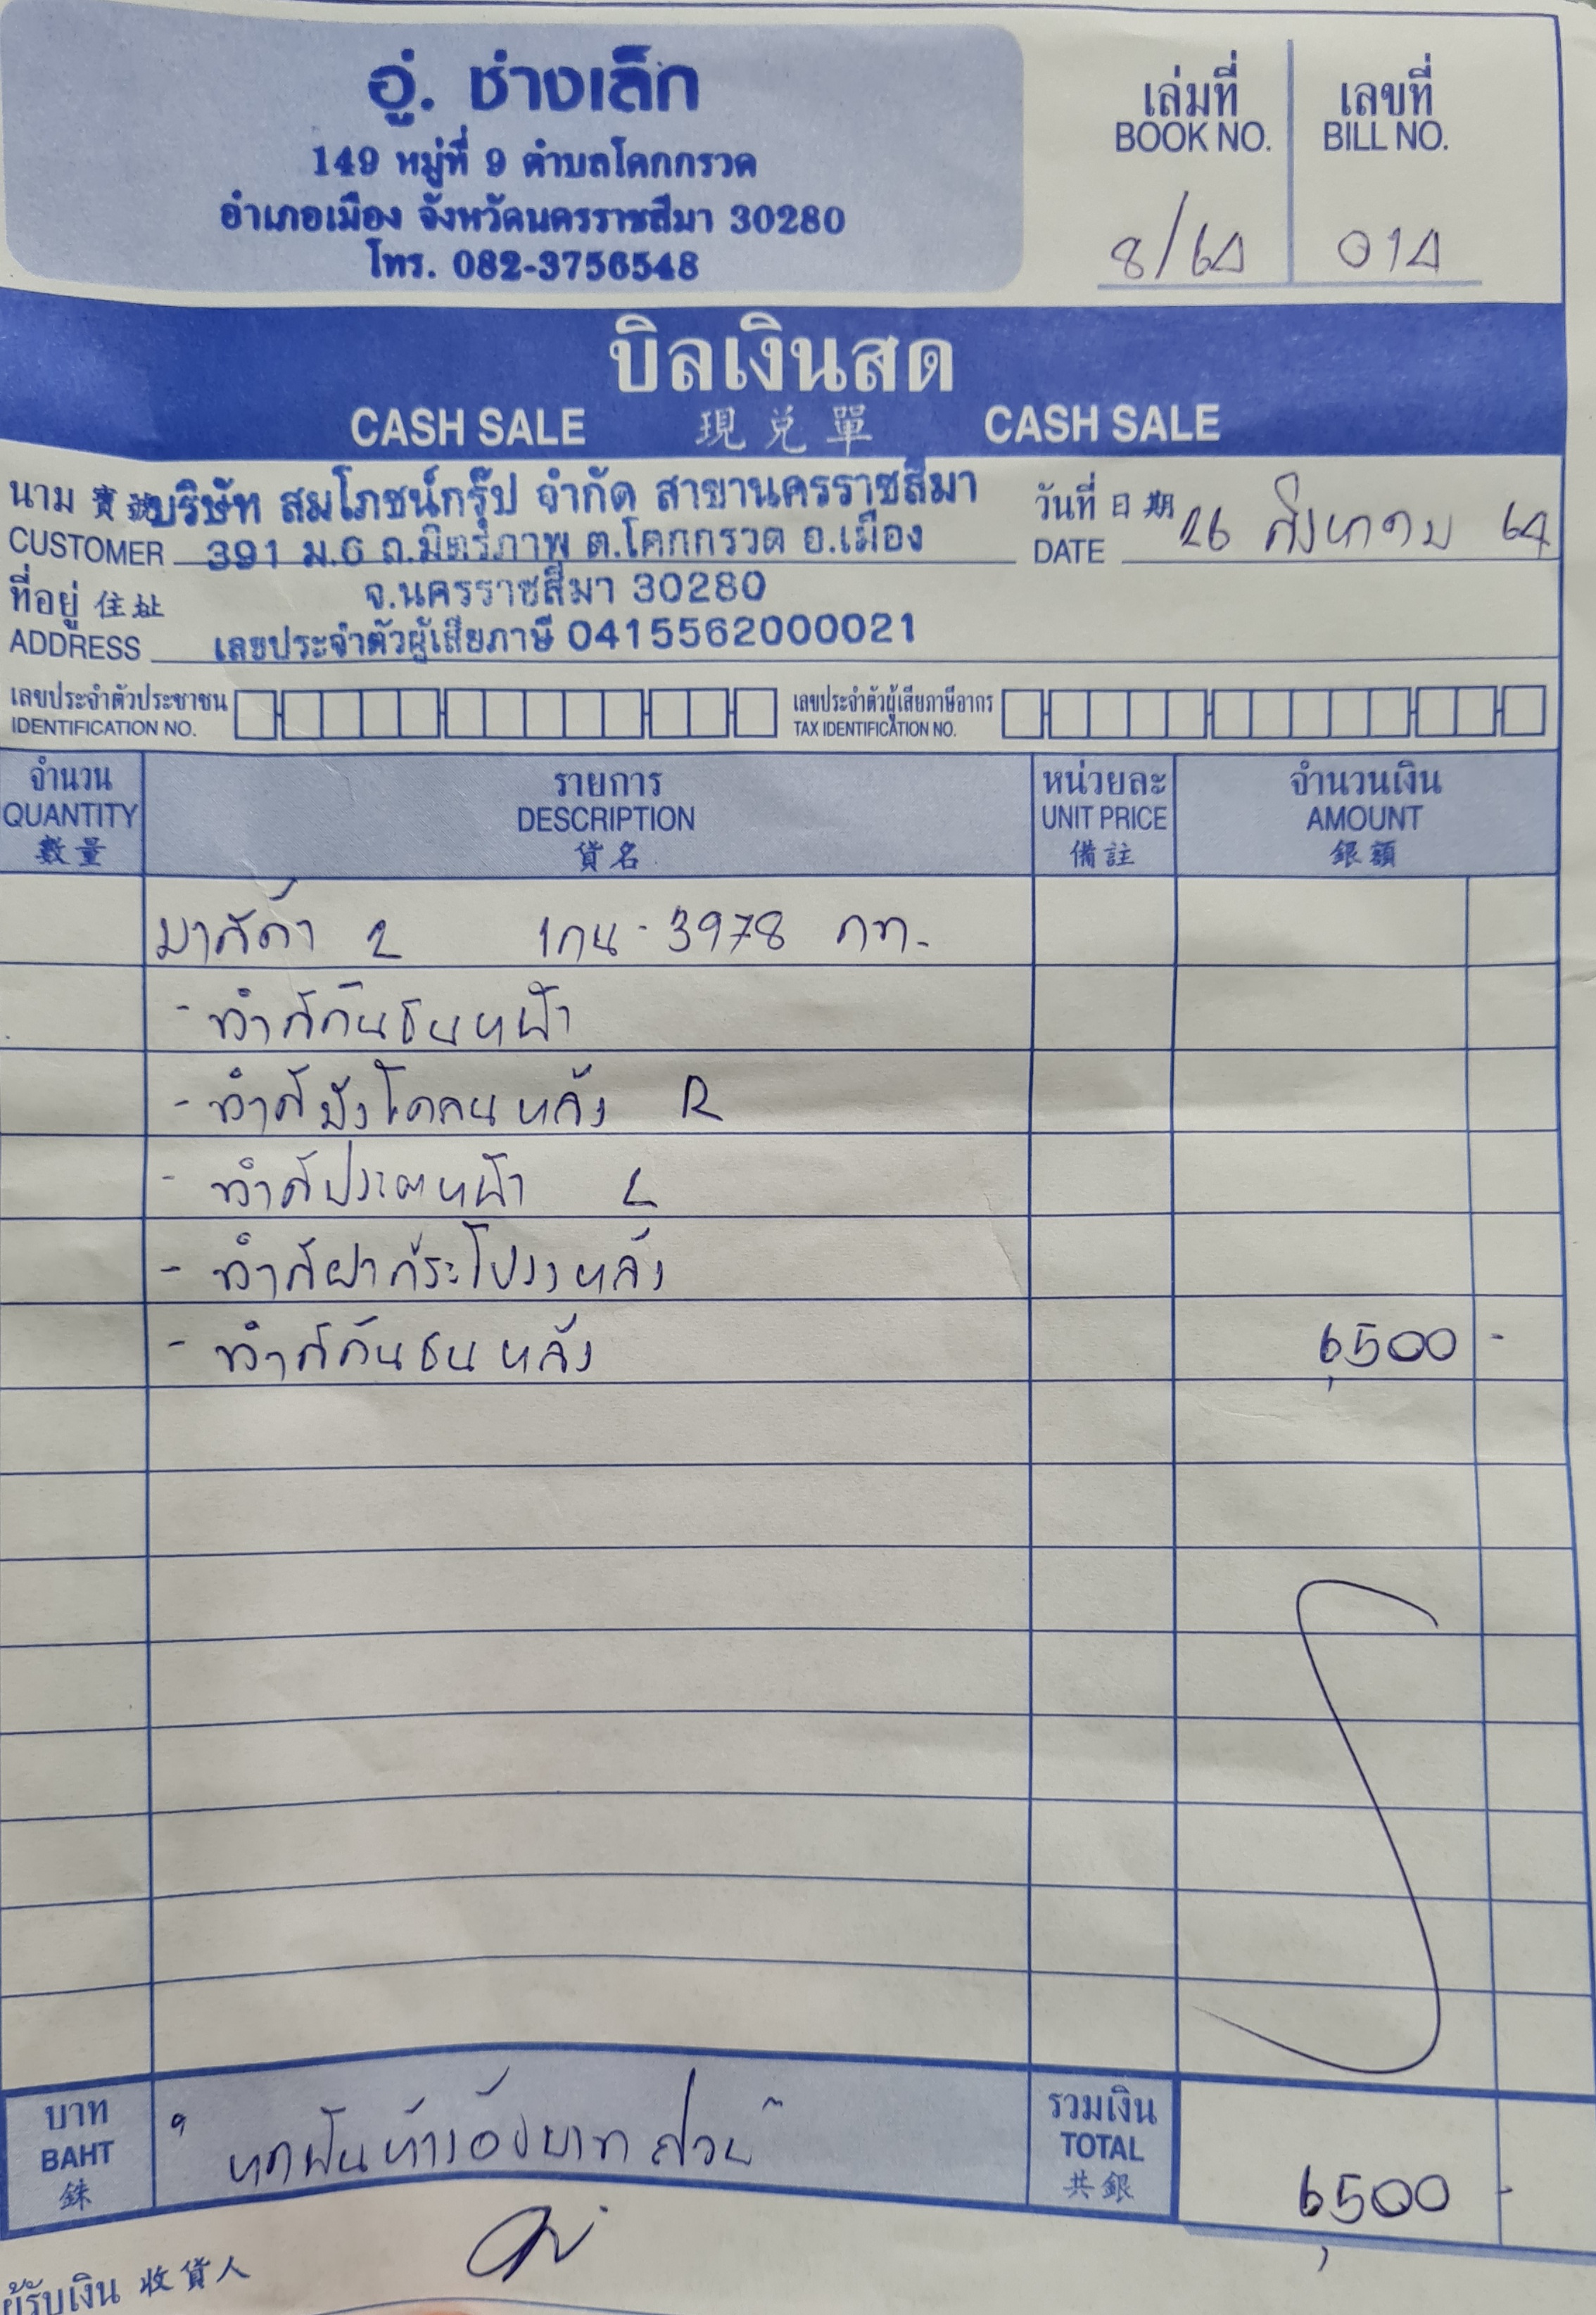 อู่. ช่างเล็ก
149 หมู่ที่ 9 ตำบลโคกกรวด
อำเภอเมือง จังหวัดนครราชสีมา 30280
โทร. 082-3756548
เล่มที่ เลขที่
BOOK NO. BILL NO.
8/64 014
บิลเงินสด
CASH SALE 現兌單 CASH SALE
นาม 寶號 บริษัท สมโภชน์กรุ๊ป จำกัด สาขานครราชสีมา วันที่ 日期 26 สิงหาคม 64
CUSTOMER 391 ม.6 ถ.มิตรภาพ ต.โคกกรวด อ.เมือง DATE
ที่อยู่ 住址 จ.นครราชสีมา 30280
ADDRESS เลขประจำตัวผู้เสียภาษี 0415562000021
เลขประจำตัวประชาชน เลขประจำตัวผู้เสียภาษีอากร
IDENTIFICATION NO. TAX IDENTIFICATION NO.
จำนวน รายการ หน่วยละ จำนวนเงิน
QUANTITY DESCRIPTION UNIT PRICE AMOUNT
數量 貨名 備註 銀額
มาสด้า 2 1กน-3978 กท.
- ทำสีกันชนหน้า
- ทำสีบังโคลนหลัง R
- ทำสีประตูหน้า L
- ทำสีฝากระโปรงหลัง
- ทำสีกันชนหลัง 6,500 -
บาท รวมเงิน
BAHT " หกพันห้าร้อยบาทถ้วน " TOTAL
銖 共銀 6,500 -
ผู้รับเงิน 收貨人